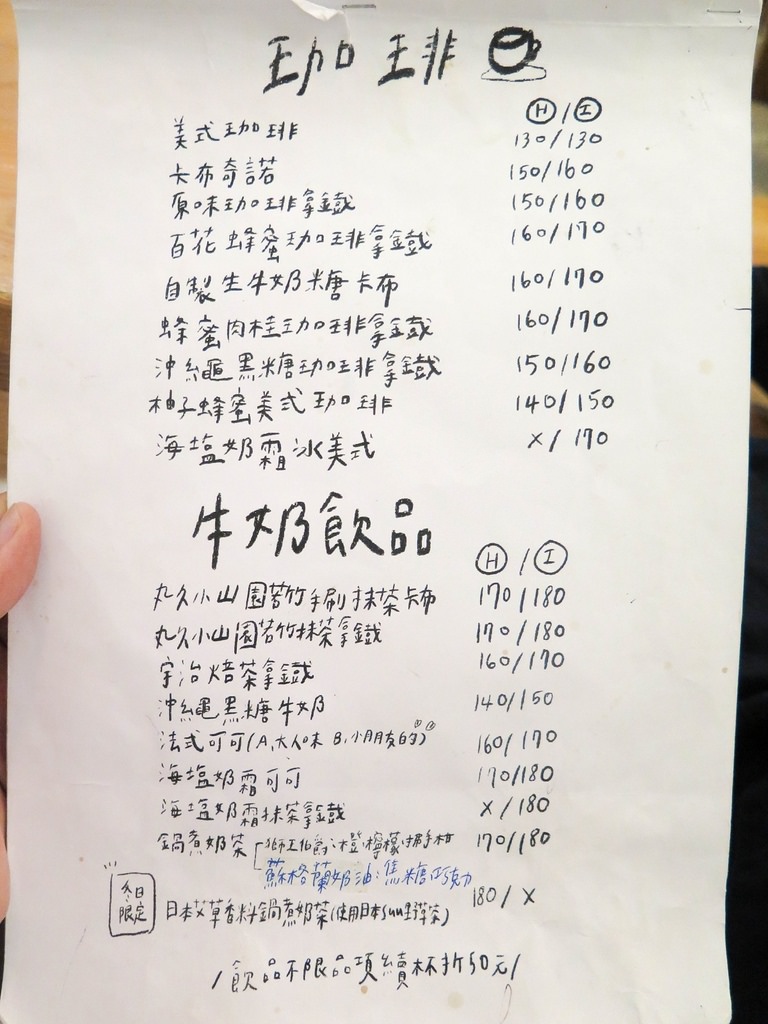 珈琲
Ⓗ/Ⓘ
美式珈琲 130/130
卡布奇諾 150/160
原味珈琲拿鐵 150/160
百花蜂蜜珈琲拿鐵 160/170
自製生牛奶糖卡布 160/170
蜂蜜肉桂珈琲拿鐵 160/170
沖繩黑糖珈琲拿鐵 150/160
柚子蜂蜜美式珈琲 140/150
海塩奶霜冰美式 x/170
牛奶飲品
Ⓗ/Ⓘ
丸久小山園若竹手刷抹茶卡布 170/180
丸久小山園若竹抹茶拿鐵 170/180
宇治焙茶拿鐵 160/170
沖繩黑糖牛奶 140/150
法式可可(A,大人味 B,小朋友的) 160/170
海塩奶霜可可 170/180
海塩奶霜抹茶拿鐵 x/180
鍋煮奶茶 獅王伯爵:橙.檸檬.佛手柑 170/180
蘇格蘭奶油:焦糖.巧克力
冬日限定 日本艾草香料鍋煮奶茶(使用日本野草茶) 180/x
/飲品不限品項續杯折50元/